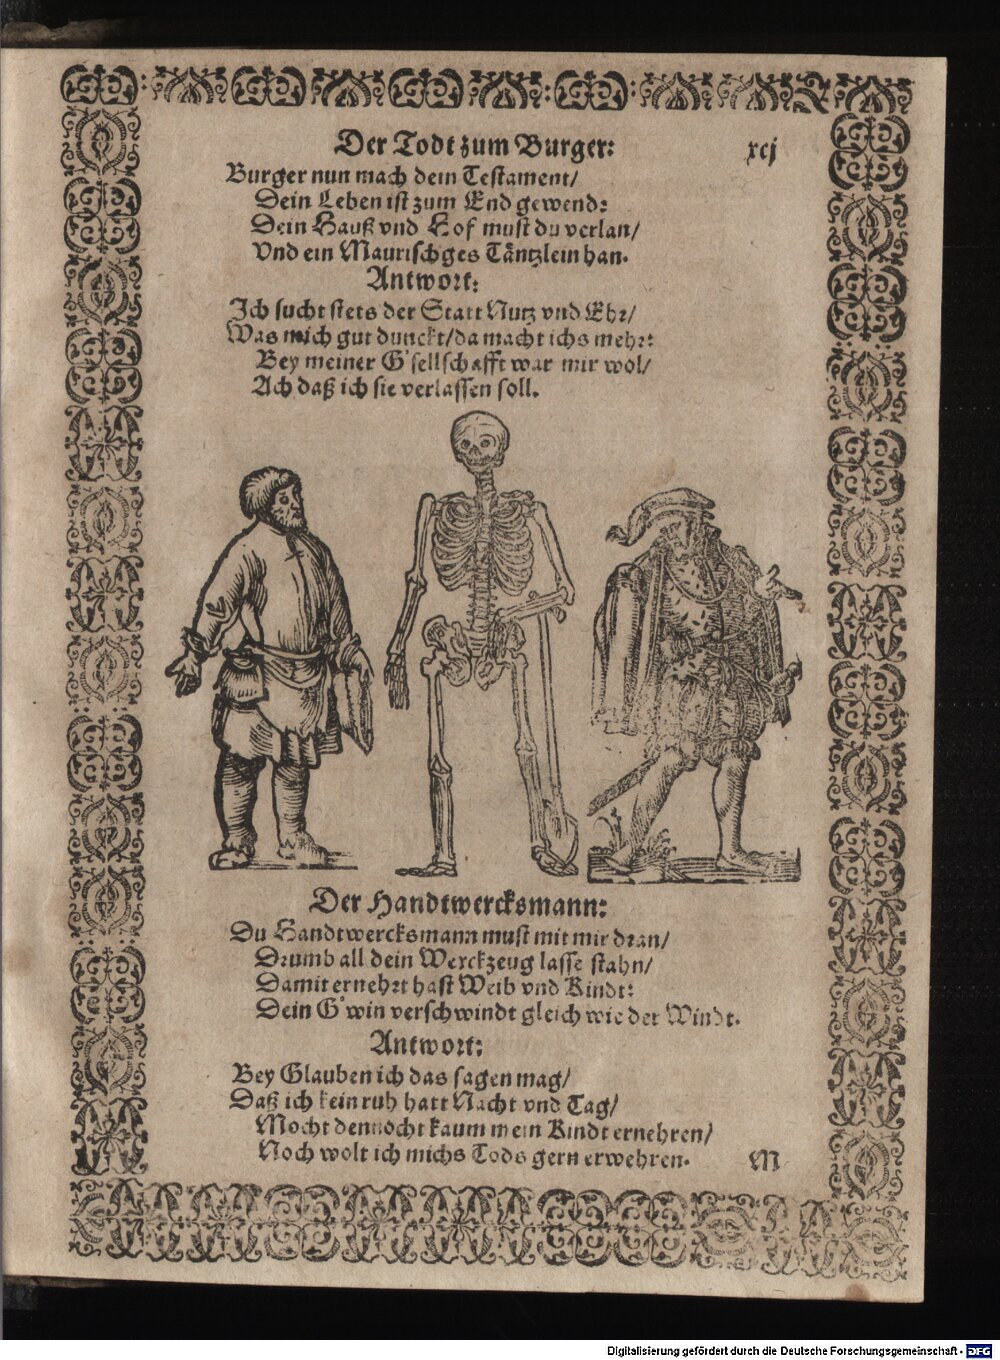 Der Todt zum Burger:
xcj
Burger nun mach dein Testament/
Dein Leben ist zum End gewend:
Dein Hauß vnd Hof must du verlan/
Vnd ein Maurischges Täntzlein han.
Antwort:
Ich sucht stets der Statt Nutz vnd Ehr/
Was mich gut dunckt/da macht ichs mehr:
Bey meiner G'sellschafft war mir wol/
Ach daß ich sie verlassen soll.
Der Handtwercksmann:
Du Handtwercksmann must mit mir dran/
Drumb all dein Werckzeug lasse stahn/
Damit ernehrt hast Weib vnd Kindt:
Dein G'win verschwindt gleich wie der Windt.
Antwort:
Bey Glauben ich das sagen mag/
Daß ich kein ruh hatt Nacht vnd Tag/
Mocht dennocht kaum mein Kindt ernehren/
Noch wolt ich michs Tods gern erwehren.
M
Digitalisierung gefördert durch die Deutsche Forschungsgemeinschaft - DFG